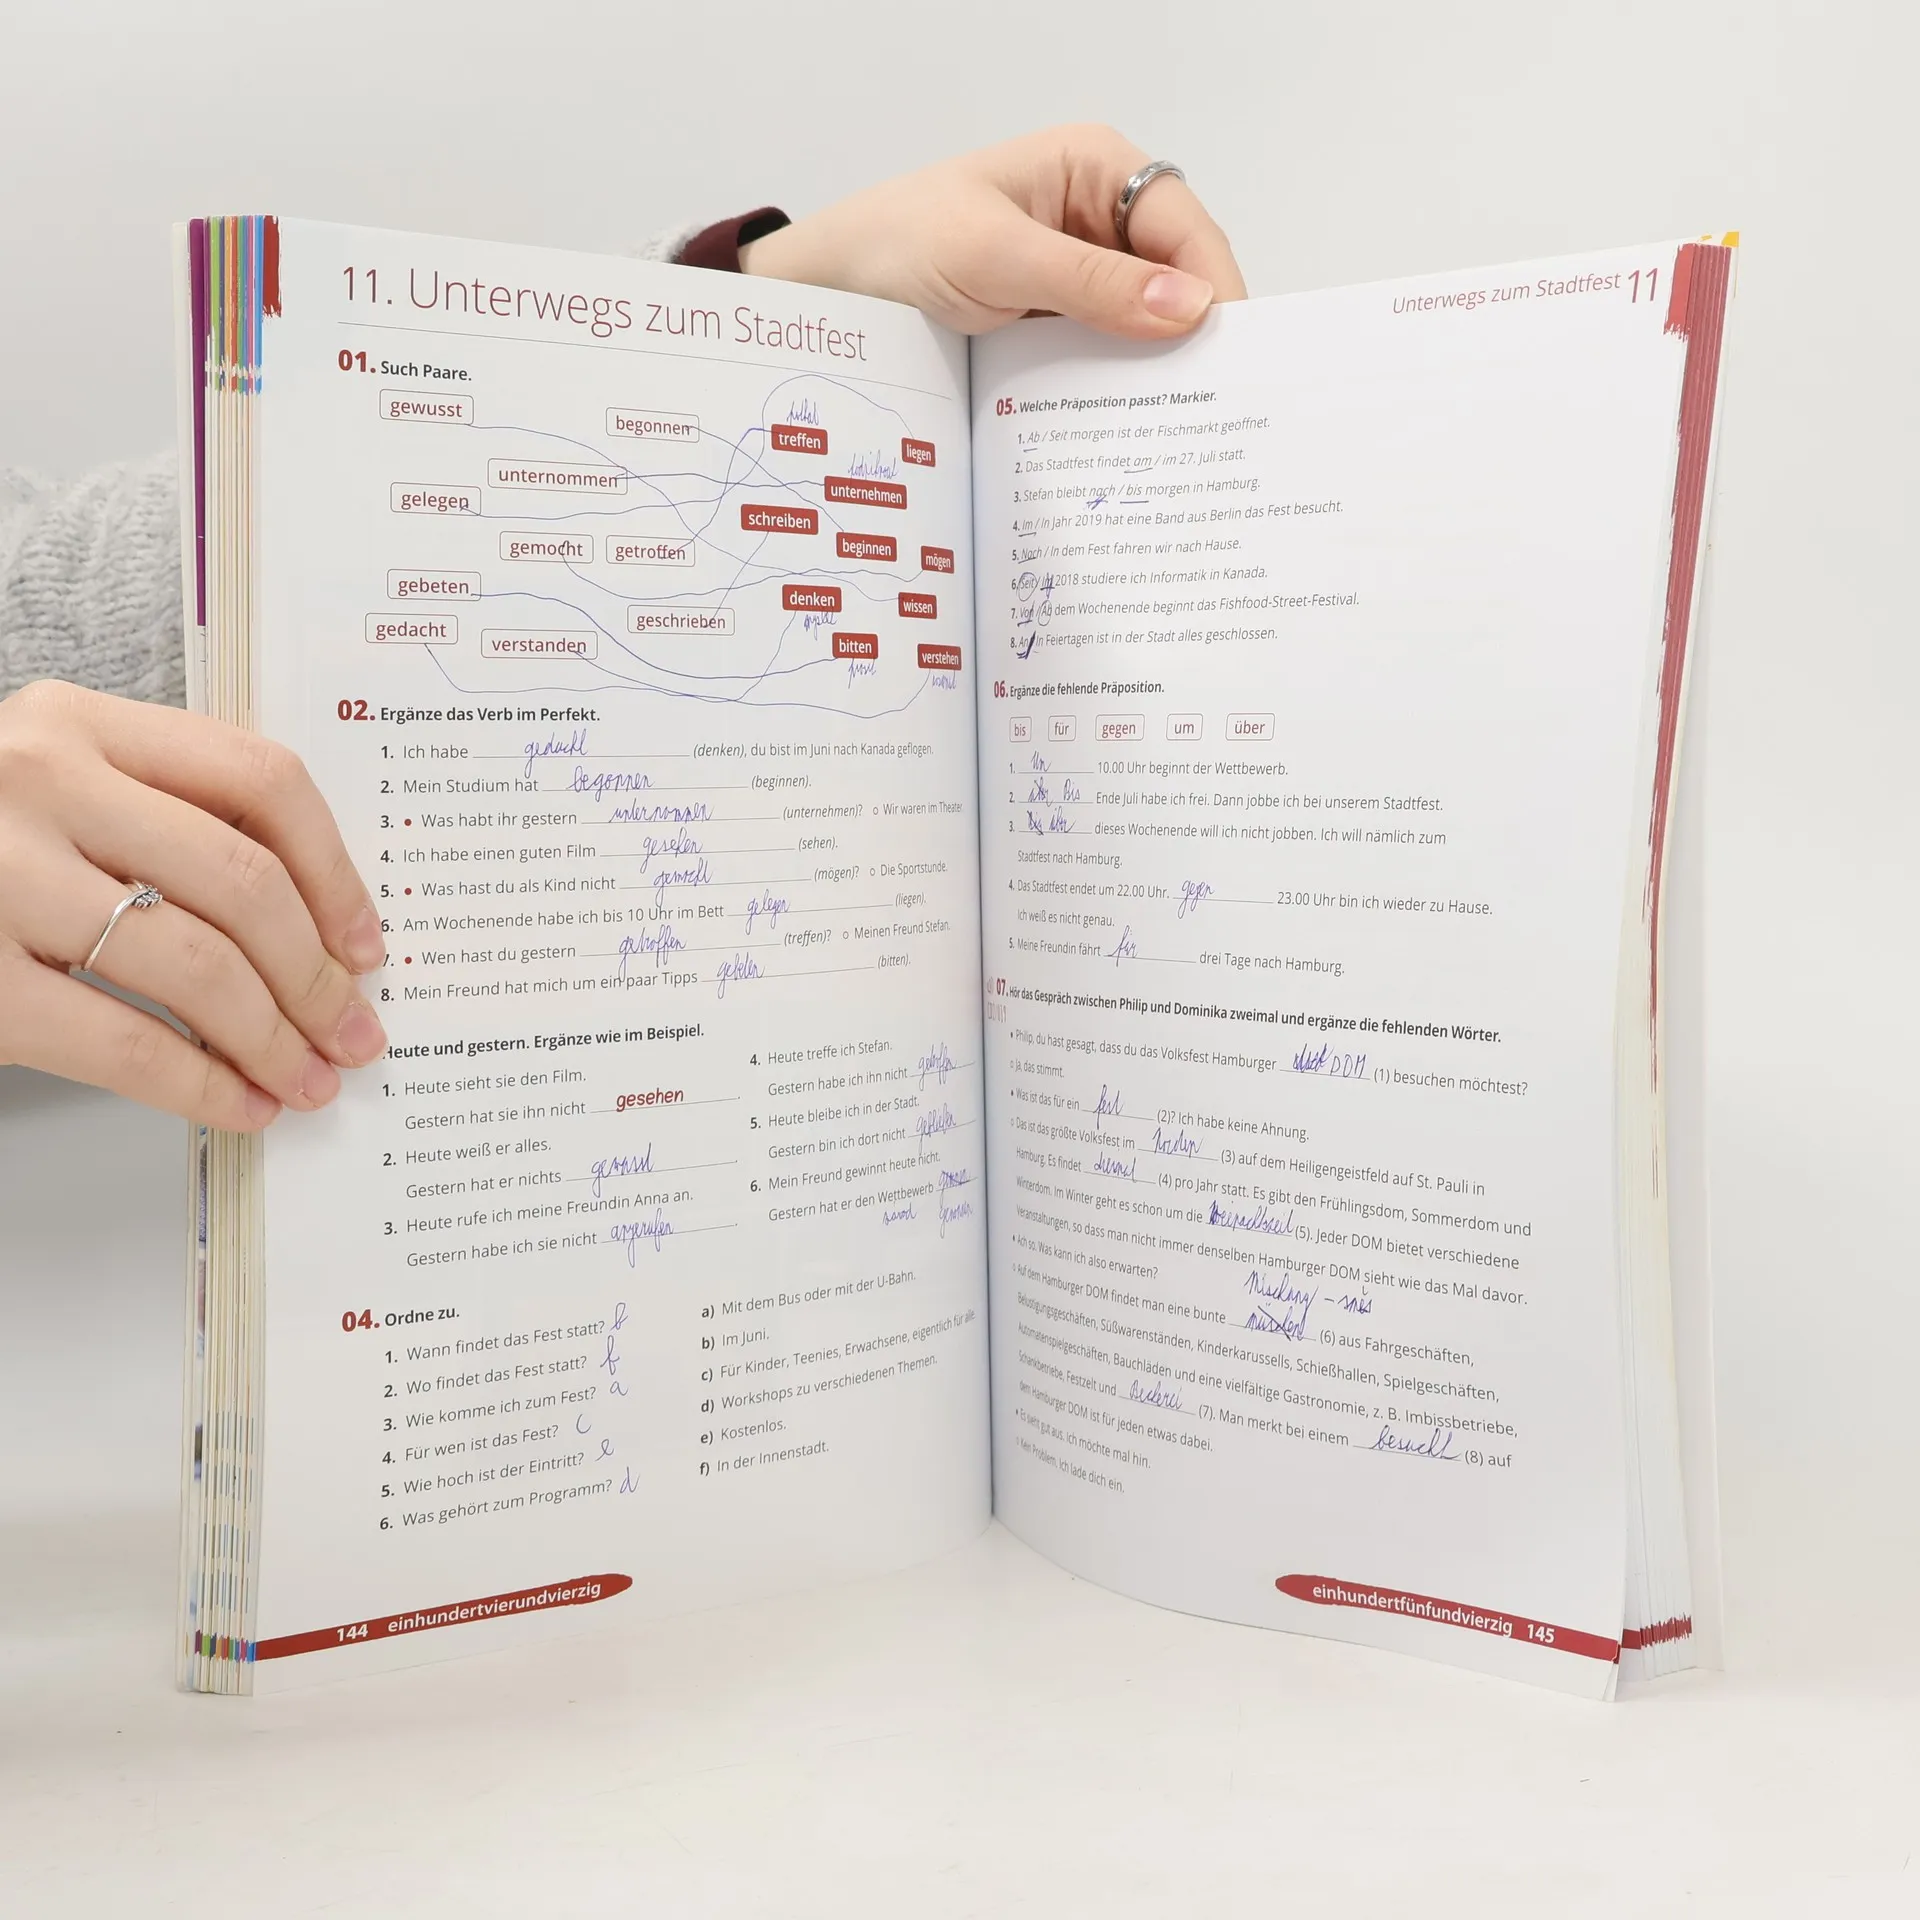 11. Unterwegs zum Stadtfest
01. Such Paare.
gewusst
begonnen
potkat
treffen
liegen
unternommen
unternehmen
gelegen
schreiben
gemocht
getroffen
beginnen
mögen
gebeten
denken
wissen
geschrieben
gedacht
verstanden
bitten
verstehen
02. Ergänze das Verb im Perfekt.
1. Ich habe gedacht (denken), du bist im Juni nach Kanada geflogen.
2. Mein Studium hat begonnen (beginnen).
3. • Was habt ihr gestern unternommen (unternehmen)? ○ Wir waren im Theater
4. Ich habe einen guten Film gesehen (sehen).
5. • Was hast du als Kind nicht gemocht (mögen)? ○ Die Sportstunde.
6. Am Wochenende habe ich bis 10 Uhr im Bett gelegen (liegen).
7. • Wen hast du gestern getroffen (treffen)? ○ Meinen Freund Stefan.
8. Mein Freund hat mich um ein paar Tipps gebeten (bitten).
Heute und gestern. Ergänze wie im Beispiel.
1. Heute sieht sie den Film.
Gestern hat sie ihn nicht gesehen.
2. Heute weiß er alles.
Gestern hat er nichts gewusst.
3. Heute rufe ich meine Freundin Anna an.
Gestern habe ich sie nicht angerufen.
4. Heute treffe ich Stefan.
Gestern habe ich ihn nicht getroffen
5. Heute bleibe ich in der Stadt.
Gestern bin ich dort nicht geblieben
6. Mein Freund gewinnt heute nicht.
Gestern hat er den Wettbewerb
04. Ordne zu.
1. Wann findet das Fest statt? b
2. Wo findet das Fest statt? f
3. Wie komme ich zum Fest? a
4. Für wen ist das Fest? c
5. Wie hoch ist der Eintritt? e
6. Was gehört zum Programm? d
a) Mit dem Bus oder mit der U-Bahn.
b) Im Juni.
c) Für Kinder, Teenies, Erwachsene, eigentlich für alle.
d) Workshops zu verschiedenen Themen.
e) Kostenlos.
f) In der Innenstadt.
144 einhundertvierundvierzig
Unterwegs zum Stadtfest 11
05. Welche Präposition passt? Markier.
1. Ab / Seit morgen ist der Fischmarkt geöffnet.
2. Das Stadtfest findet am / im 27. Juli statt.
3. Stefan bleibt nach / bis morgen in Hamburg.
4. Im / In Jahr 2019 hat eine Band aus Berlin das Fest besucht.
5. Nach / In dem Fest fahren wir nach Hause.
6. Seit / Im 2018 studiere ich Informatik in Kanada.
7. Von / Ab dem Wochenende beginnt das Fishfood-Street-Festival.
8. An / In Feiertagen ist in der Stadt alles geschlossen.
06. Ergänze die fehlende Präposition.
bis für gegen um über
1. Um 10.00 Uhr beginnt der Wettbewerb.
2. über Bis Ende Juli habe ich frei. Dann jobbe ich bei unserem Stadtfest.
3. Bis über dieses Wochenende will ich nicht jobben. Ich will nämlich zum
Stadtfest nach Hamburg.
4. Das Stadtfest endet um 22.00 Uhr. gegen 23.00 Uhr bin ich wieder zu Hause.
Ich weiß es nicht genau.
5. Meine Freundin fährt für drei Tage nach Hamburg.
07. Hör das Gespräch zwischen Philip und Dominika zweimal und ergänze die fehlenden Wörter.
• Philip, du hast gesagt, dass du das Volksfest Hamburger DOM (1) besuchen möchtest?
○ Ja, das stimmt.
• Was ist das für ein fest (2)? Ich habe keine Ahnung.
○ Das ist das größte Volksfest im Norden (3) auf dem Heiligengeistfeld auf St. Pauli in
Hamburg. Es findet dreimal (4) pro Jahr statt. Es gibt den Frühlingsdom, Sommerdom und
Winterdom. Im Winter geht es schon um die (5). Jeder DOM bietet verschiedene
Veranstaltungen, so dass man nicht immer denselben Hamburger DOM sieht wie das Mal davor.
• Ach so. Was kann ich also erwarten?
Mischung – směs
○ Auf dem Hamburger DOM findet man eine bunte (6) aus Fahrgeschäften,
Belustigungsgeschäften, Süßwarenständen, Kinderkarussells, Schießhallen, Spielgeschäften,
Automatenspielgeschäften, Bauchläden und eine vielfältige Gastronomie, z. B. Imbissbetriebe,
Schankbetriebe, Festzelt und Beckerei (7). Man merkt bei einem besucht (8) auf
dem Hamburger DOM ist für jeden etwas dabei.
• Es sieht gut aus. Ich möchte mal hin.
○ Kein Problem, ich lade dich ein.
einhundertfünfundvierzig 145